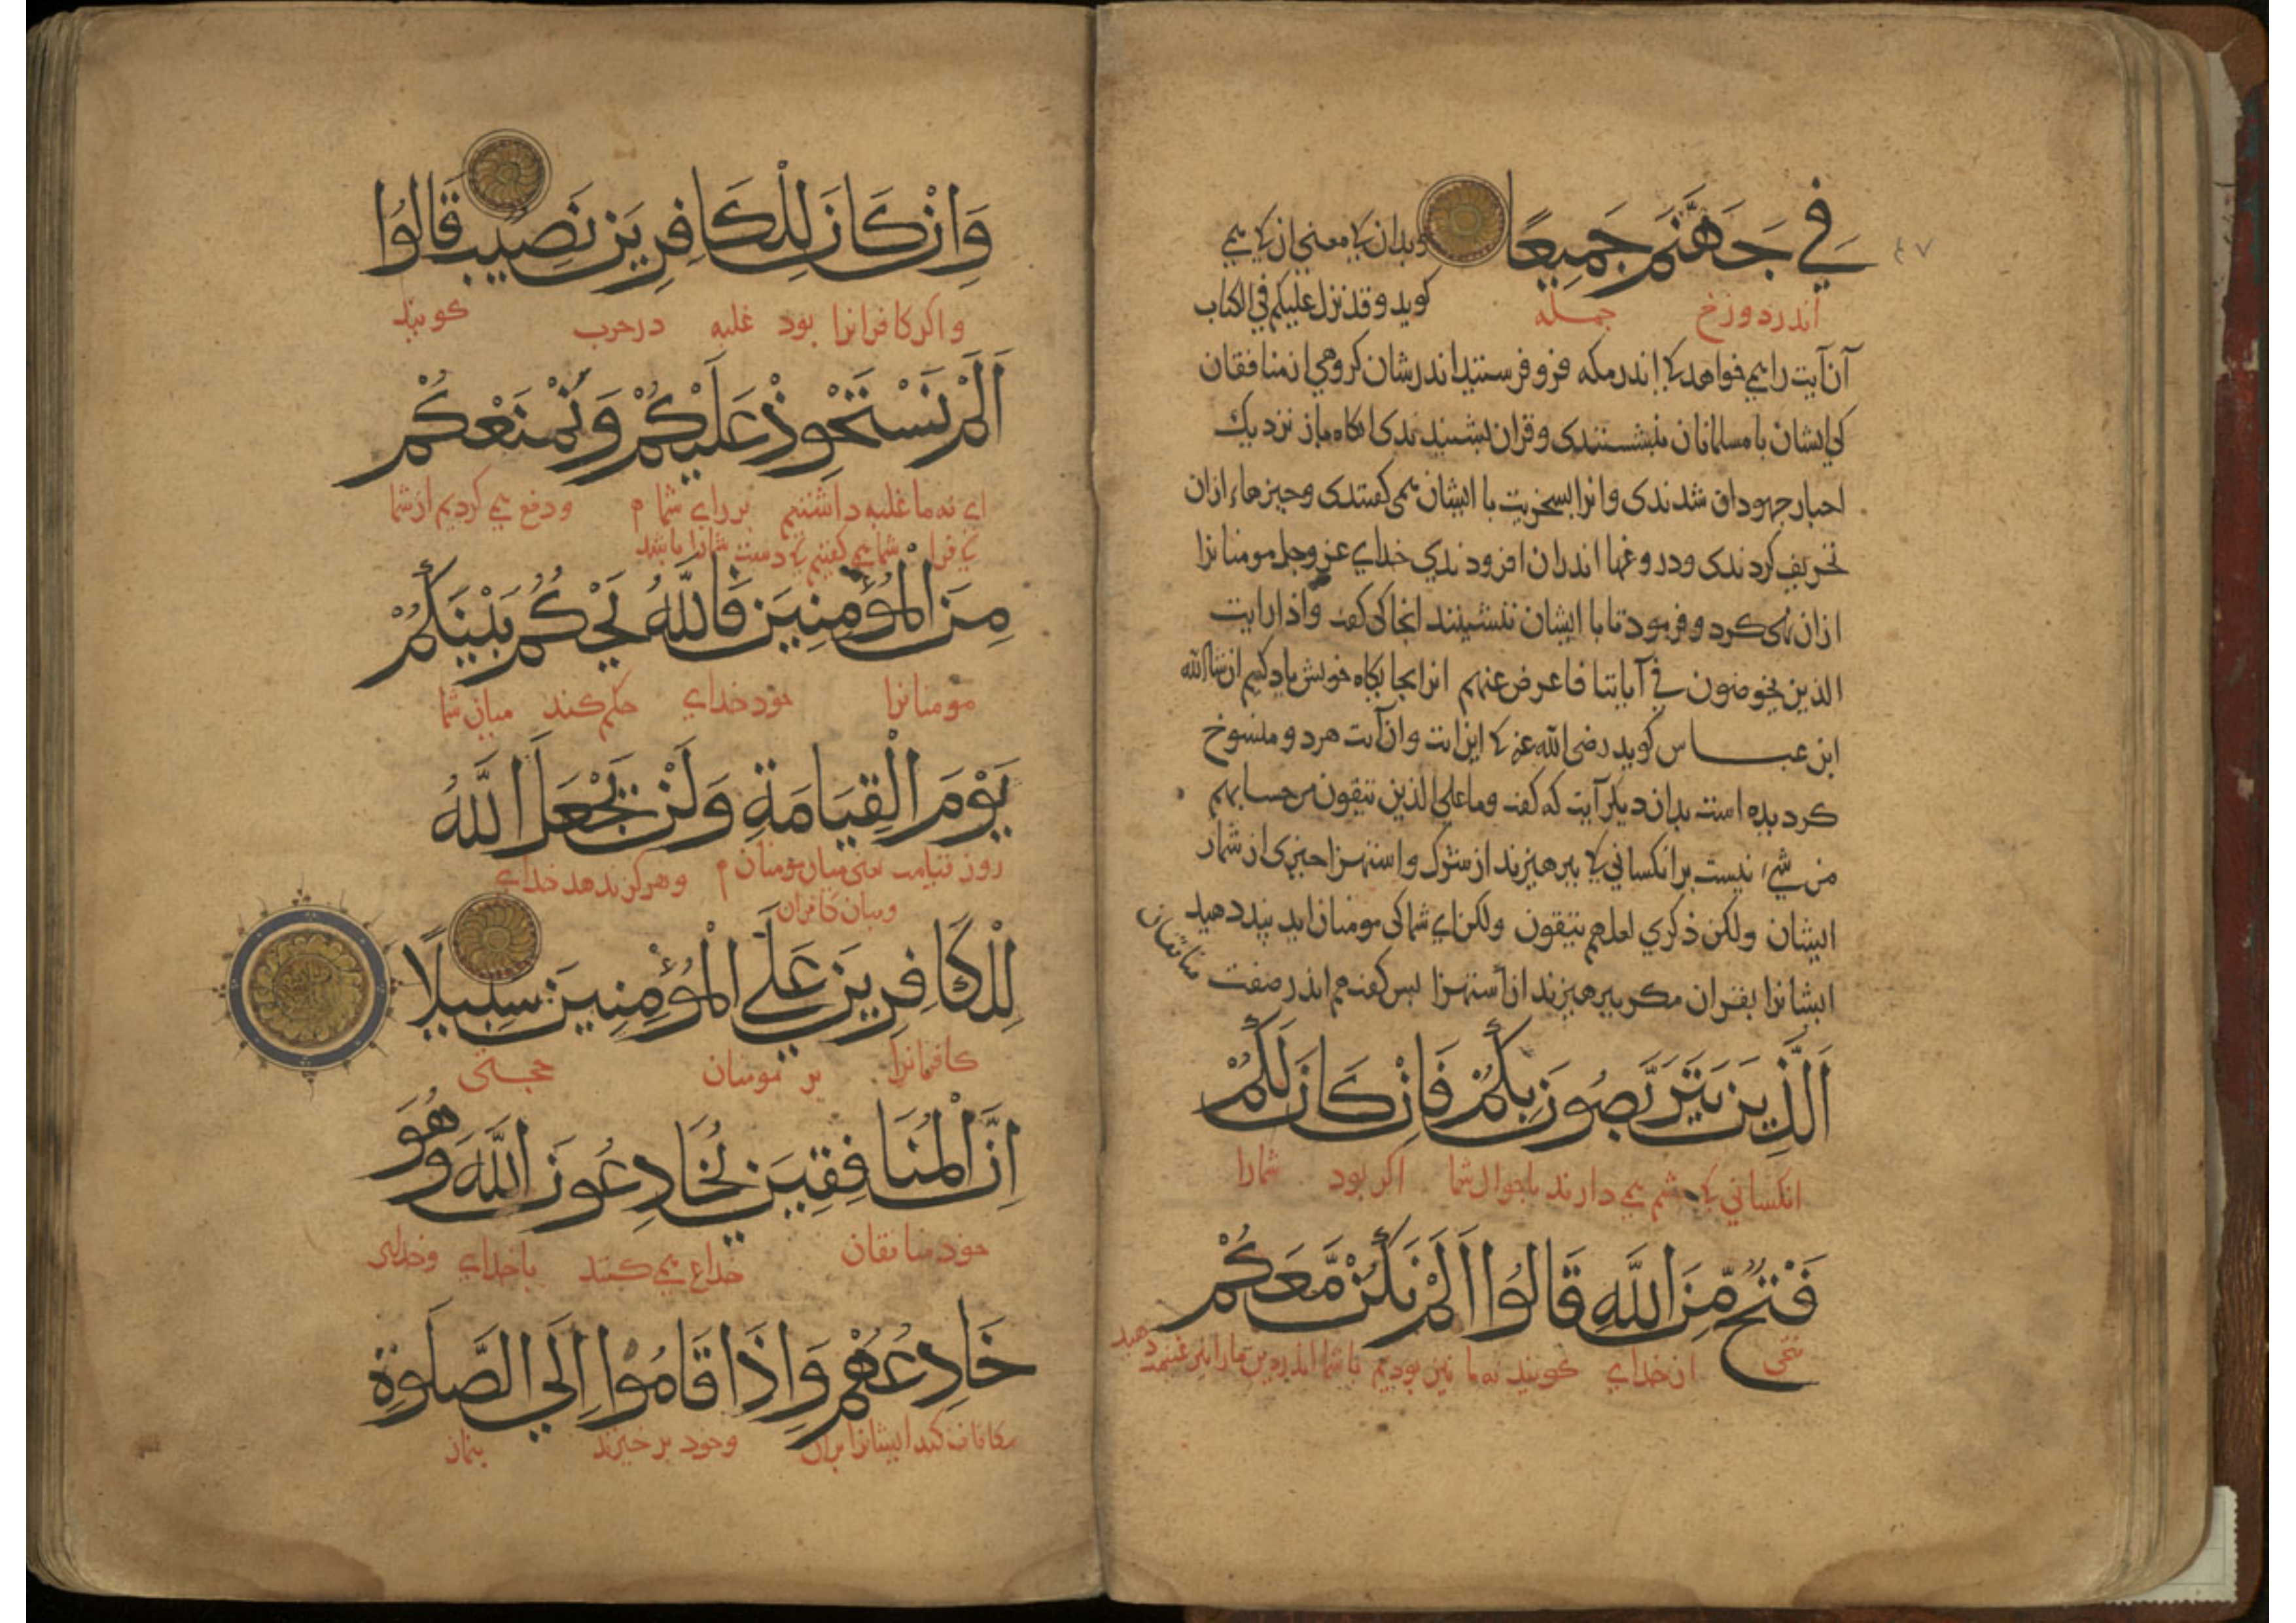 فِي جَهَنَّمَ جَمِيعًا
وبدان کی معنی ان کی همی
اندر دوزخ جمله
کوید وقد نزل علیکم فی الکتاب
آن آیت را همی خواهد کی اندر مکه فرو فرستید اندرشان کروهی از منافقان
کی ایشان با مسلمانان بنشستندی وقران بشنیدندی انکاه باز نزدیک
احبار جهودان شدندی وانرا بسخریت با ایشان همی کفتندی وچیزهاء ازان
تحریف کردندی ودروغها اندران افزودندی خدای عز وجل مومنانرا
ازان نهی کرد وفرمود تا با ایشان ننشینند انجا کی کفت واذا رایت
الذین یخوضون فی آیاتنا فاعرض عنهم انرا بجایکاه خویش یاد کنیم ان شا الله
ابن عباس کوید رضی الله عنه کی این ایت وان آیت هر دو منسوخ
کردیده است بدان دیکر آیت که کفت وما علی الذین یتقون من حسابهم
من شیء نیست بر انکسانی کی بپرهیزند از شرک واستهزا چیزی از شمار
ایشان ولکن ذکری لعلهم یتقون ولکن ای شما کی مومنان اید پند دهید
ایشانرا بقران مکر بپرهیزند از استهزا پس کفت هم اندر صفت منافقان
اَلَّذِينَ يَتَرَبَّصُونَ بِكُمْ فَاِنْ كَانَ لَكُمْ
انکسانی کی چشم همی دارند باحوال شما اکر بود شمارا
فَتْحٌ مِّنَ اللَّهِ قَالُوا اَلَمْ نَكُنْ مَّعَكُمْ
فتحی از خدای کویند نه ما نیز بودیم با شما اندر دین مارا نیز غنیمت دهید
وَاِنْ كَانَ لِلْكَافِرِينَ نَصِيبٌ قَالُوا
واکر کافرانرا بود غلبه در حرب کویند
اَلَمْ نَسْتَحْوِذْ عَلَيْكُمْ وَنَمْنَعْكُمْ
ای نه ما غلبه داشتیم بر رای شما ودفع همی کردیم از شما
شما همی کفتیم دست شمارا باشد
مِنَ الْمُؤْمِنِينَ فَاللَّهُ يَحْكُمُ بَيْنَكُمْ
مومنانرا خود خدای حکم کند میان شما
يَوْمَ الْقِيَامَةِ وَلَنْ يَجْعَلَ اللَّهُ
روز قیامت یعنی میان مومنان وهرکز ندهد خدای
ومیان کافران
لِلْكَافِرِينَ عَلَى الْمُؤْمِنِينَ سَبِيلًا
کافرانرا بر مومنان حجتی
اِنَّ الْمُنَافِقِينَ يُخَادِعُونَ اللَّهَ وَهُوَ
خود منافقان خداع همی کنند با خدای وخدای
خَادِعُهُمْ وَاِذَا قَامُوا اِلَى الصَّلَوةِ
مکافات کند ایشانرا بران وخود بر خیزند بنماز